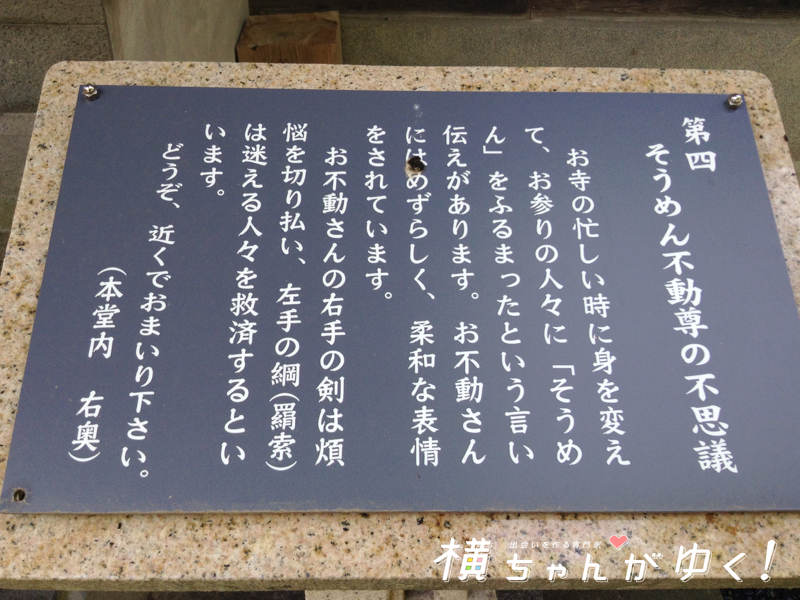 第四
そうめん不動尊の不思議
お寺の忙しい時に身を変え
て、お参りの人々に「そうめ
ん」をふるまったという言い
伝えがあります。お不動さん
にはめずらしく、柔和な表情
をされています。
お不動さんの右手の剣は煩
悩を切り払い、左手の綱(羂索)
は迷える人々を救済するとい
います。
どうぞ、近くでおまいり下さい。
(本堂内 右奥)
出会いを作る専門家
横ちゃんがゆく!